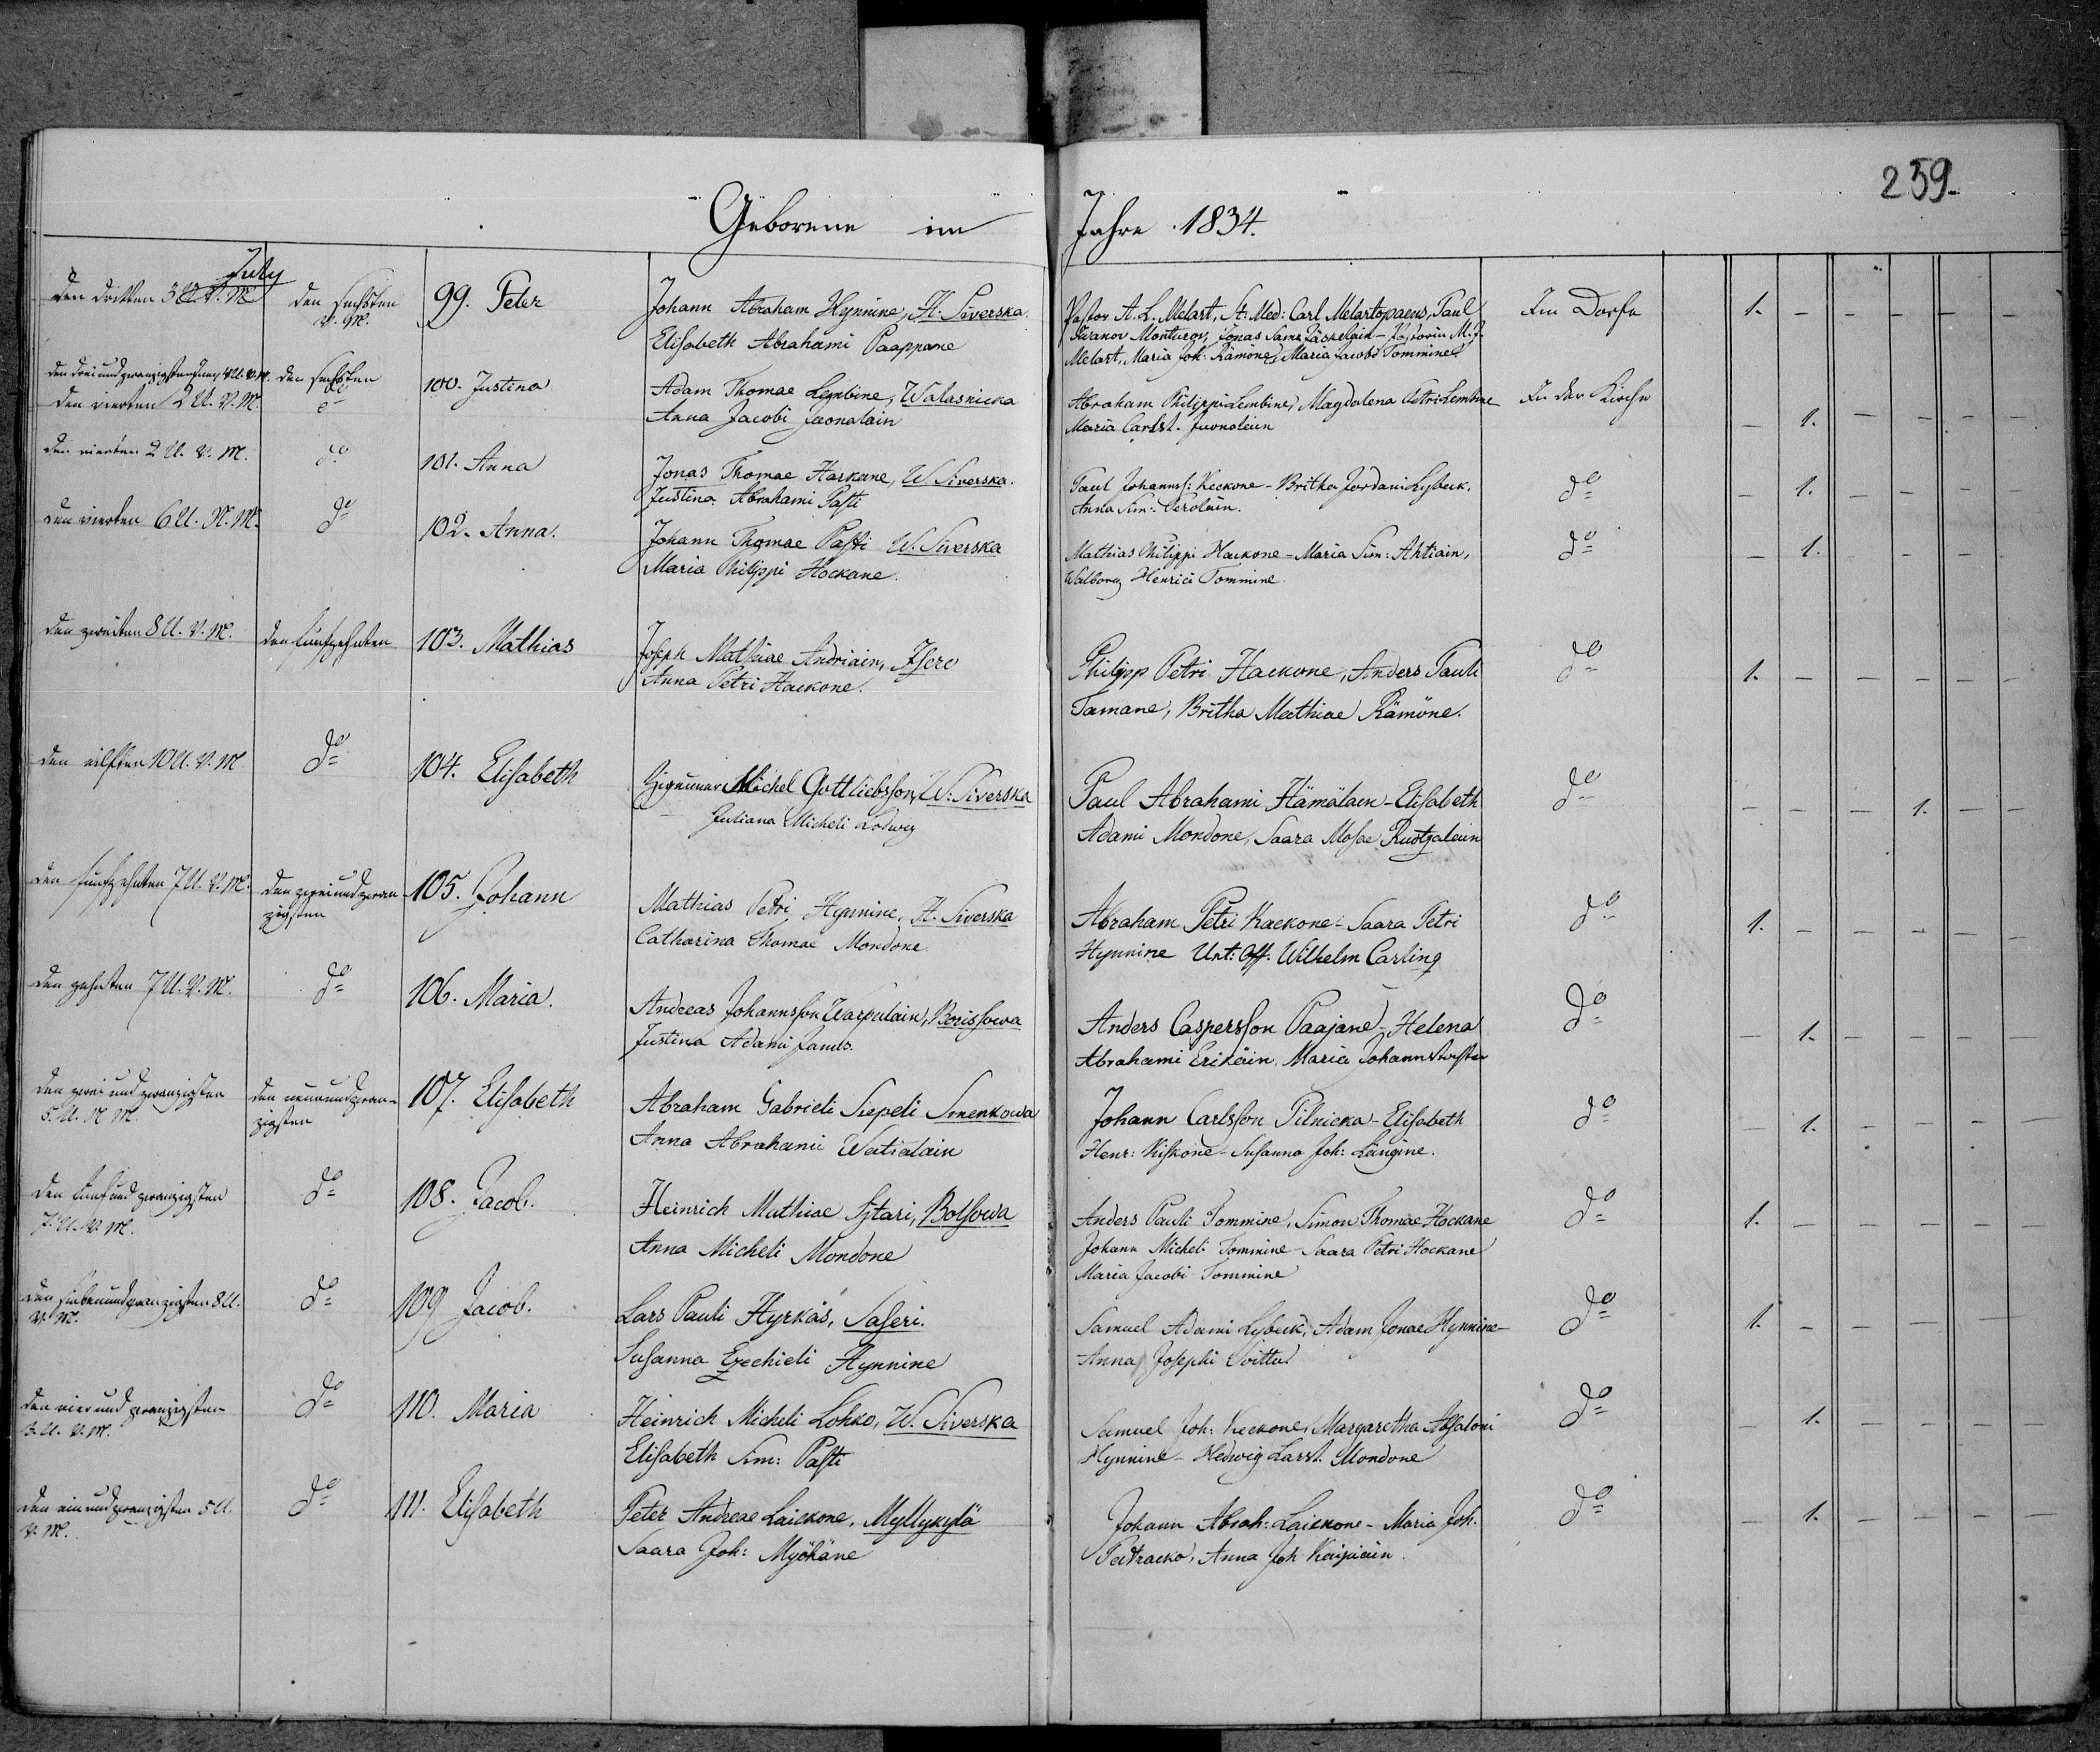 259.
Geborene im Jahre 1834.
July
den dritten 3 U. V. M. den sechsten V. M. 99. Peter
Johann Abraham Hynnine, H. Siverska
Elisabeth Abrahami Paappane
Pastor A. L. Melart, St. Med: Carl Melartopaeus, Paul
Iwanov Monturov, Jonas
Melart, Maria Joh: Rämöne, Maria Jacobi Tommine
Im Dorfe 1. – – – – –
den dreiundzwanzigsten Juny 4 U. V. M. den sechsten
den vierten 2 U. V. M.
100. Justina
Adam Thomae Lembine, Walasnicka
Anna Jacobi Juonalain
Abraham Philippi Lembine, Magdalena Petri Lembine
Maria Carlst. Juonalain
In der Kirche – 1. – – – –
den vierten 2 U. V. M. do 101. Anna
Jonas Thomae Haskane, W. Siverska.
Justina Abrahami Pasti
Paul Johannss: Keckone - Britha Jordani Lybeck,
Anna Sim: Perolain.
do – 1. – – – –
den vierten 6 U. N. M. do 102. Anna.
Johann Thomae Pasti W. Siverska
Maria Philippi Hockane.
Mathias Philippi Hackone - Maria Sim: Ahtiain,
Walborg Henrici Tommine
do – 1. – – –
den zweiten 8 U. V. M. den fünfzehnten 103. Mathias
Joseph Mathiae Andriain, Isero
Anna Petri Hackone.
Philipp Petri Hackone, Anders Pauli
Tamane, Britha Mathiae Rämöne.
do 1. – – – – –
den eilften 10 U. V. M. do 104. Elisabeth
Zigeuner Michel Gottliebsson, W: Siverska
Juliana Micheli Lodwig
Paul Abrahami Hämälain - Elisabeth
Adami Mondone, Saara Mosae Ruotzalain
do – – – 1. – –
den fünfzehnten 7 U. V. M. den zweiundzwan-
zigsten
105. Johann
Mathias Petri Hynnine, H. Siverska
Catharina Thomae Mondone
Abraham Petri Kackone - Saara Petri
Hynnine Unt: Off. Wilhelm Carling
do 1. – – – – –
den zehnten 7 U. V. M. do 106. Maria.
Andreas Johannsson Warpulain, Borissowa
Justina Adami
Anders Caspersson Paajane - Helena
Abrahami Erikäin, Maria Johannstochter
do – 1. – – – –
den zwei und zwanzigsten
5. U. N. M.
den neunundzwan-
zigsten
107. Elisabeth
Abraham Gabrieli Siepeli Smenkowa
Anna Abrahami Watialain
Johann Carlsson Pilnicka - Elisabeth
Henr: Kiskone - Susanna Joh: Längine.
do – 1. – – – –
den fünf und zwanzigsten
7. U. V. M.
do 108. Jacob.
Heinrich Mathiae Sztari, Bolsowa
Anna Micheli Mondone
Anders Pauli Tommine, Simon Thomae Hockane
Johann Micheli Tommine - Saara Petri Hockane
Maria Jacobi Tommine
do 1. – – – – –
den siebenundzwanzigsten 8 U.
V. M.
do 109 Jacob.
Lars Pauli Hyrkäs, Saseri.
Susanna Ezechieli Hynnine
Samuel Adami Lybeck, Adam Jonae Hynnine -
Anna Josephi
do 1. – – – – –
den vier und zwanzigsten
3. U. V. M.
do 110. Maria
Heinrich Micheli Lohko, W. Siverska
Elisabeth Sim: Pasti
Samuel Joh: Keckone, Margaretha Absaloni
Hynnine - Hedwig Larst. Mondone
do – 1. – – – –
den ein und zwanzigsten 5 U.
V. M.
do 111. Elisabeth
Peter Andreae Laickone, Myllykylä
Saara Joh: Myöhäne
Johann Abrah: Laickone - Maria Joh.
Patracko, Anna Joh
do – 1. – – – –